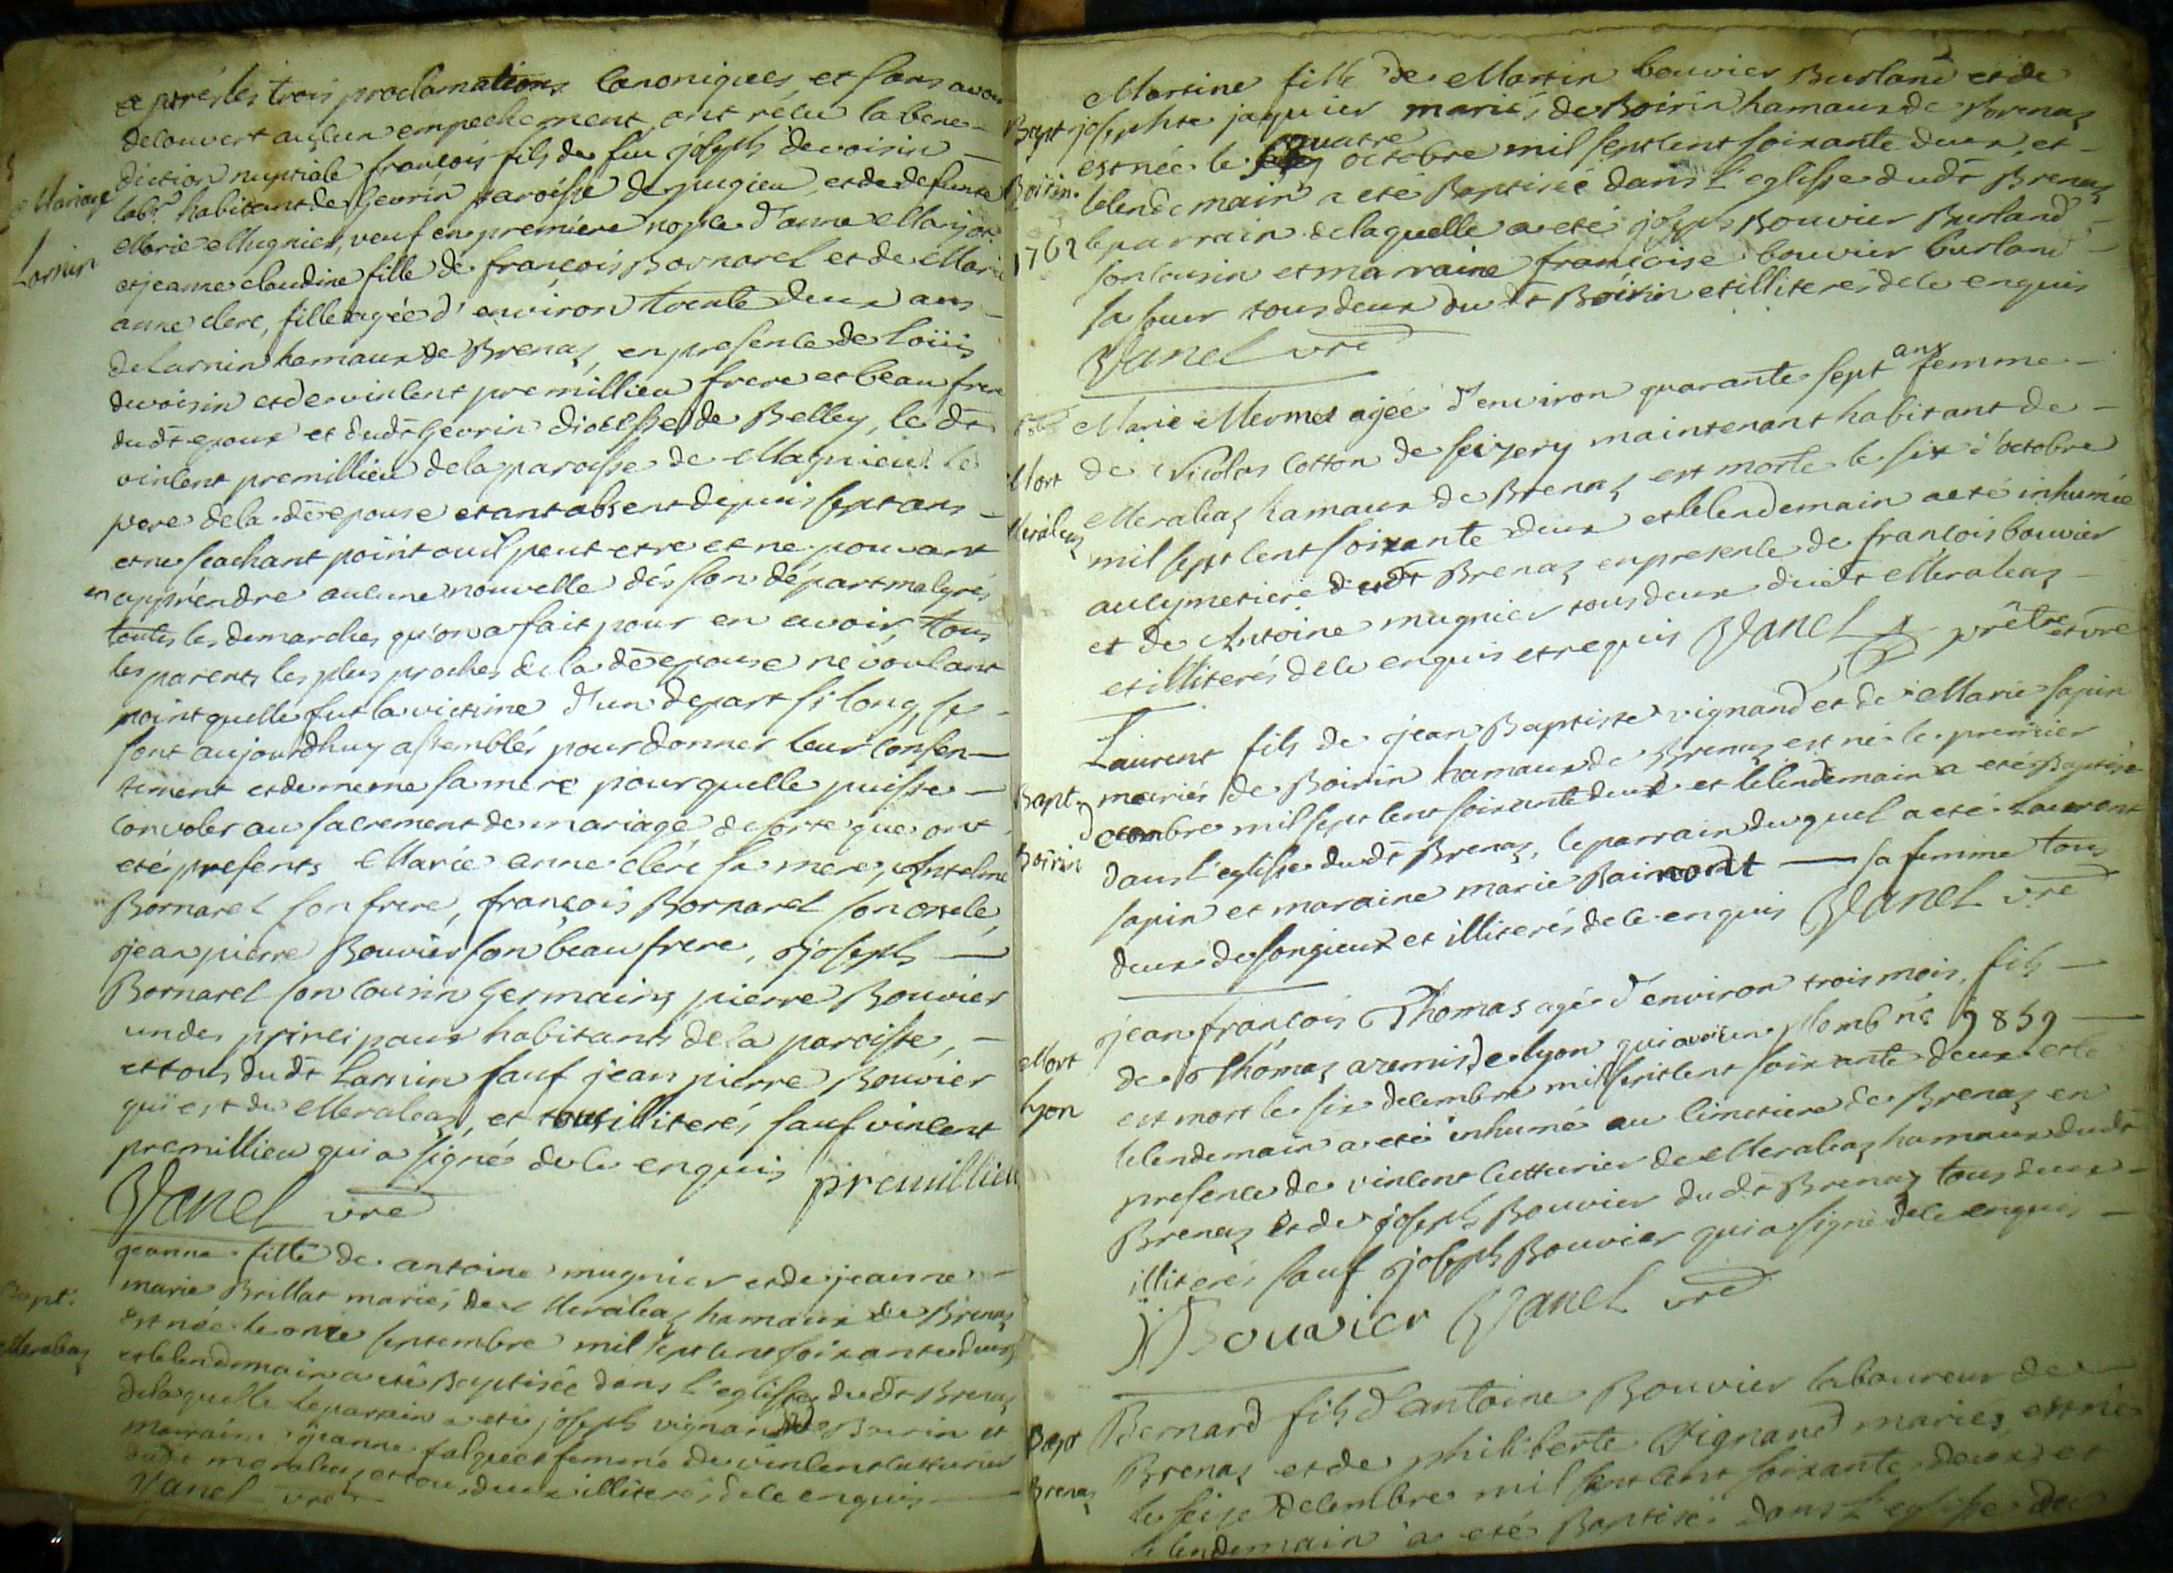 après les trois proclamations canoniques et sans avoir
decouvert aucun empechement ont recu la bene-
diction nuptiale françois fils de feu joseph devoisin
Mariage
labr habitant de Gevrin paroisse de pugieu, et de defunte
Marie Mugnier, veuf en première nopce d'anne
Larnin
et jeanne claudine fille de françois Bornarel et de Marie
anne clere, fille agée d'environ trente deux ans
de Larnin hamaux de Brenaz, en presence de Loüis
devoisin et de vincent premillieu frere et beau frere
dudt epoux et dudt Gevrin diocesse de Belley, le dt
vincent premillieu de la paroisse de Magnieu. Le
pere de la de epouse etant absent depuis sept ans
et ne scachant point ou il peut etre et ne pouvant
en apprendre aucune nouvelle dés son départ malgrés
toutes les demarches qu'on a fait pour en avoir, tous
les parents les plus proches de la de epouse ne voulant
point quelle fut la victime d'un depart si long, se
sont aujourdhuy assemblés pour donner leur consen-
tement et de meme sa mere pour quelle puisse
convoler au sacrement de mariage de sorte que ont
eté presents Marie anne clére sa mere, Antelme
Bornarel son frere, françois Bornarel son oncle,
jean pierre Bouvier son beau frere, joseph
Bornarel son cousin Germains pierre Bouvier
un des principaux habitants de la paroisse,
et tous du dt Larnin sauf jean pierre Bouvier
qui est de Meraleaz, et tous illiterés sauf vincent
premillieu qui a signé de ce enquis premillieu
Vanel vre
jeanne fille de antoine mugnier et de jeanne
Bapt.
marie Brillat mariés de Meraleaz hamaux de Brenaz
est née le onze septembre mil sept cent soixante deux
Meraleaz
et le lendemain a eté Baptisée dans l'eglisse dudt Brenaz
de laquelle le parrain a eté joseph vignand de Boirin et
marraine jeanne falquet femme de vincent cutturier
dudt meraleaz et tous deux illiterés de ce enquis
Vanel vre
Martine fille de Martin bouvier Burland et de
Bapt
josephte jaquier mariés de Boirin hamaux de Brenaz
est née le quatre octobre mil sept cent soixante deux, et
Boirin
le lendemain a eté Baptisée dans l'eglisse dudt Brenaz
1762
le parrain de laquelle a eté joseph Bouvier Burland
son cousin et marraine françoise bouvier burland
sa soeur tous deux du dt Boirin et illiterés de ce enquis
Vanel vre
Marie Mermet agée d'environ quarante sept ans femme
Mort
de Nicolas Cotton de seizery maintenant habitant de
Meraleaz
Meraleaz hamaux de Brenaz est morte le six d'octobre
mil sept cent soixante deux et le lendemain a eté inhumée
au cymetiere dudt Brenaz en presence de francois bouvier
et de Antoine mugnier tous deux dudt Meraleaz
et illiterés de ce enquis et requis Vanel prêtre et vre
Laurent fils de jean Baptiste vignand et de Marie sapin
Bapt.
mariés de Boirin hamaux de Brenaz est né le premier
decembre mil sept cent soixante deux et le lendemain a eté Baptisé
Boirin
dans l'eglisse dudt Brenaz, le parrain duquel a eté Laurent
sapin et maraine marie Raimondt sa femme tous
deux de songieux et illiterés de ce enquis Vanel vre
jean françois Thomas agé d'environ trois mois, fils
Mort
de Thomas de lyon qui avoit un plomb né 9859
lyon
est mort le six decembre mil sept cent soixante deux et le
lendemain a eté inhumé au cimetiere de Brenaz en
presence de vincent cutturier de Meraleaz hamaux dudt
Brenaz et de joseph Bouvier dudt Brenaz tous deux
illiterés sauf joseph Bouvier qui a signé de ce enquis
J Bouvier Vanel vre
Bernard fils d'antoine Bouvier laboureur de
Bapt
Brenaz et de philiberte Vignand mariés est né
Brenaz
le seize decembre mil sept cent soixante deux et
le lendemain a eté Baptisé dans l'eglisse de